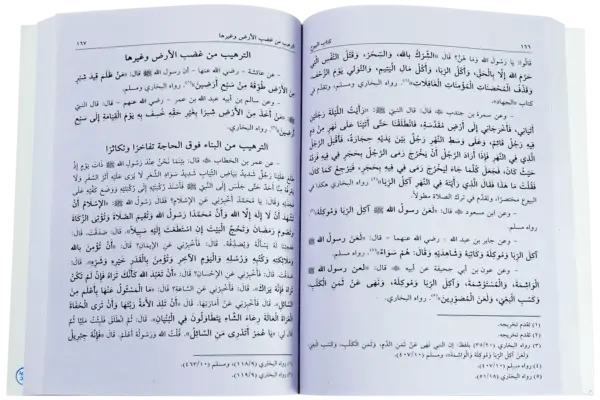 ١٦٦
كتاب البيوع
قالوا: يا رسول الله وما هُنَّ؟ قال: «الشِّرْكُ بالله، وَالسِّحْرُ، وَقَتْلُ النَّفْسِ الَّتِي
حَرَّمَ اللهُ إِلَّا بِالْحَقِّ، وَأَكْلُ الرِّبَا، وَأَكْلُ مَالِ الْيَتِيمِ، وَالتَّوَلِّي يَوْمَ الزَّحْفِ،
وَقَذْفُ الْمُحْصَنَاتِ الْمُؤْمِنَاتِ الْغَافِلَاتِ». رواه البخاري ومسلم، وتقدم في
كتاب «الجهاد».
- وعن سمرة بن جندب قال: قال النبي ﷺ: «رَأَيْتُ اللَّيْلَةَ رَجُلَيْنِ
أَتَيَانِي، فَأَخْرَجَانِي إِلَى أَرْضٍ مُقَدَّسَةٍ، فَانْطَلَقْنَا حَتَّى أَتَيْنَا عَلَى نَهْرٍ مِنْ دَمٍ
فِيهِ رَجُلٌ قَائِمٌ، وَعَلَى وَسَطِ النَّهْرِ رَجُلٌ بَيْنَ يَدَيْهِ حِجَارَةٌ، فَأَقْبَلَ الرَّجُلُ
الَّذِي فِي النَّهْرِ، فَإِذَا أَرَادَ الرَّجُلُ أَنْ يَخْرُجَ رَمَى الرَّجُلُ بِحَجَرٍ فِي فِيهِ فَرَدَّهُ
حَيْثُ كَانَ، فَجَعَلَ كُلَّمَا جَاءَ لِيَخْرُجَ رَمَى فِي فِيهِ بِحَجَرٍ، فَيَرْجِعُ كَمَا كَانَ
فَقُلْتُ مَا هَذَا فَقَالَ الَّذِي رَأَيْتَهُ فِي النَّهْرِ آكِلُ الرِّبَا». رواه البخاري هكذا في
البيوع مختصرًا، وتقدم في ترك الصلاة مطولاً.
- وعن ابن مسعود قال: «لَعَنَ رسولُ الله ﷺ آكِلَ الرِّبَا وَمُوكِلَهُ»
رواه مسلم.
- وعن جابر بن عبد الله - رضي الله عنهما - قال: «لَعَنَ رسولُ الله ﷺ
آكِلَ الرِّبَا وَمُوكِلَهُ وَكَاتِبَهُ وَشَاهِدَيْهِ وَقَالَ: هُمْ سَوَاءٌ». رواه مسلم.
- وعن عون بن أبي جحيفة عن أبيه قال: «لعن رسول الله ﷺ
الْوَاشِمَةَ، وَالْمُسْتَوْشِمَةَ، وَآكِلَ الرِّبَا وَمُوكِلَهُ، وَنَهَى عَنْ ثَمَنِ الْكَلْبِ،
وَكَسْبِ الْبَغِيِّ، وَلَعَنَ الْمُصَوِّرِينَ». رواه البخاري.
(١) تقدم تخريجه.
(٢) تقدم تخريجه.
(٣) رواه البخاري
(٤) رواه مسلم
(٥) رواه البخاري (٥١/١٨)
الترهيب من غصب الأرض وغيرها
١٦٧
الترهيب من غصب الأرض وغيرها
- عن عائشة - رضي الله عنها - أن رسول الله ﷺ قال: «مَنْ ظَلَمَ قِيدَ شِبْرٍ
مِنَ الأَرْضِ طُوِّقَهُ مِنْ سَبْعِ أَرَضِينَ». رواه البخاري ومسلم.
- وعن سالم بن أبيه عبد الله بن عمر - رضي الله عنهم - قال: قال النبي
ﷺ: «مَنْ أَخَذَ مِنَ الأَرْضِ شِبْرًا بِغَيْرِ حَقِّهِ خُسِفَ بِهِ يَوْمَ الْقِيَامَةِ إِلَى سَبْعِ
أَرَضِينَ». رواه البخاري.
الترهيب من البناء فوق الحاجة تفاخرًا وتكاثرًا
- عن عمر بن الخطاب قال: بينما نحنُ عند رسول الله ﷺ ذات يومٍ إذْ
طَلَعَ علينا رجلٌ شديدُ بياض الثياب شديدُ سوادِ الشعر لا يُرى عليه أثرُ السَّفر ولا
يعرفُهُ منَّا أحدٌ حتى جلسَ إلى النبيِّ ﷺ فأسندَ ركبتَيْهِ إلى ركبتَيْهِ ووضعَ كفَّيْهِ على
فخذَيْهِ وقال: يا محمدُ أخبرني عن الإسلام؟ فقال رسول الله ﷺ: «الإِسْلَامُ أَنْ
تَشْهَدَ أَنْ لَا إِلَهَ إِلَّا اللهُ وَأَنَّ مُحَمَّدًا رَسُولُ اللهِ وَتُقِيمَ الصَّلَاةَ وَتُؤْتِيَ الزَّكَاةَ
وَتَصُومَ رَمَضَانَ وَتَحُجَّ الْبَيْتَ إِنِ اسْتَطَعْتَ إِلَيْهِ سَبِيلاً». قال: صدقتَ. قال:
فعجبنا له يسألُهُ ويُصدِّقُهُ. قال: فأخبرني عن الإيمان؟ قال: «أَنْ تُؤْمِنَ بِاللهِ
وَمَلَائِكَتِهِ وَكُتُبِهِ وَرُسُلِهِ وَالْيَوْمِ الآخِرِ وَتُؤْمِنَ بِالْقَدَرِ خَيْرِهِ وَشَرِّهِ». قال:
صدقتَ. قال: فأخبرني عن الإحسان؟ قال: «أَنْ تَعْبُدَ اللهَ كَأَنَّكَ تَرَاهُ فَإِنْ لَمْ تَكُنْ
تَرَاهُ فَإِنَّهُ يَرَاكَ». قال: فأخبرني عن الساعة؟ قال: «مَا الْمَسْئُولُ عَنْهَا بِأَعْلَمَ مِنَ
السَّائِلِ». قال: فأخبرني عن أماراتها. قال: «أَنْ تَلِدَ الأَمَةُ رَبَّتَهَا وَأَنْ تَرَى الْحُفَاةَ
الْعُرَاةَ الْعَالَةَ رِعَاءَ الشَّاءِ يَتَطَاوَلُونَ فِي الْبُنْيَانِ». قال: ثمَّ انطلقَ فلبثتُ مليًّا ثمَّ
قال لي: «يَا عُمَرُ أَتَدْرِي مَنِ السَّائِلُ». قلتُ: الله ورسوله أعلم. قال: «فَإِنَّهُ جِبْرِيلُ
(١) رواه البخاري (١١٨/٩)، ومسلم
(٢) رواه البخاري (١١٩/٩).